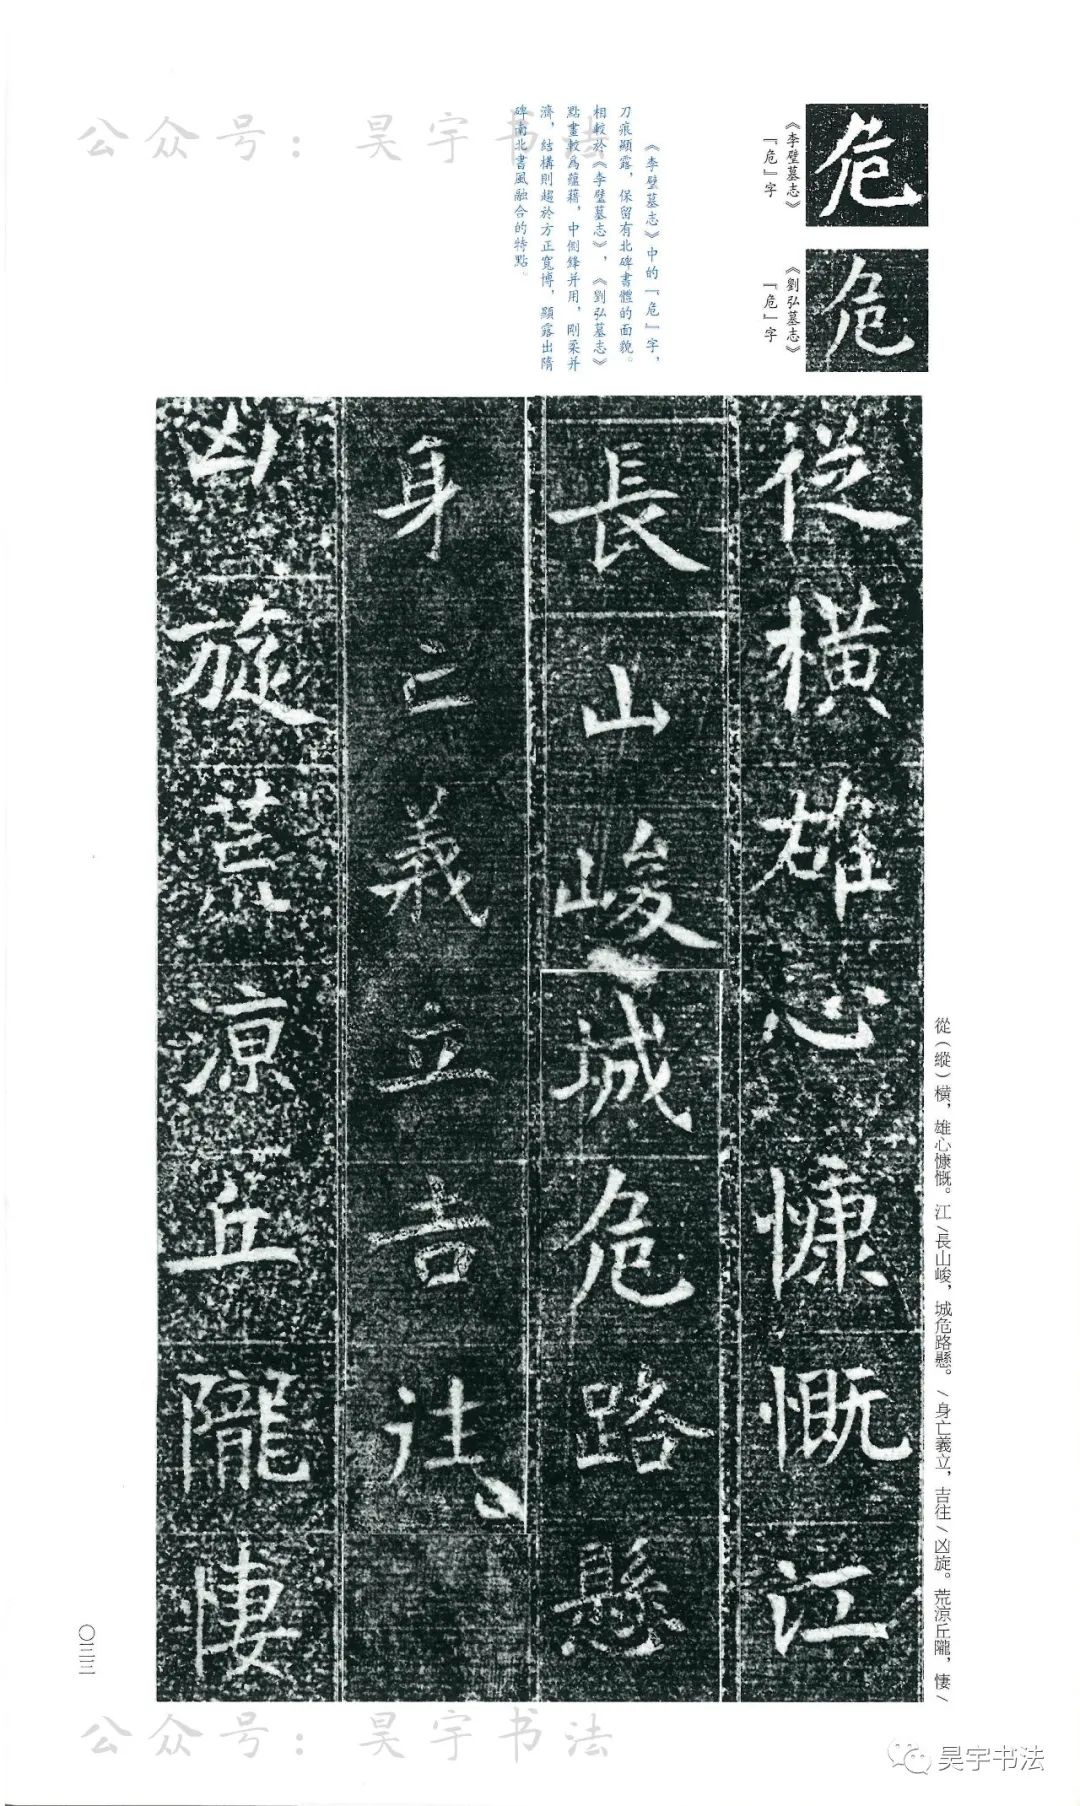 公众号：昊宇书法
《李璧墓志》
『危』字
《劉弘墓志》
『危』字
《李璧墓志》中的『危』字，
刀痕顯露，保留有北碑書體的面貌。
相較於《李璧墓志》，《劉弘墓志》
點畫較爲蘊藉，中側鋒并用，剛柔并
濟，結構則趨於方正寬博，顯露出隋
碑南北書風融合的特點。
危
危
從橫雄心慷慨江
長山峻城危路懸
身亡義立吉往
凶旋荒涼丘隴悽
從（縱）橫，雄心慷慨。江/長山峻，城危路懸。/身亡義立，吉往/凶旋。荒涼丘隴，悽/
〇三三
公众号：昊宇书法
昊宇书法